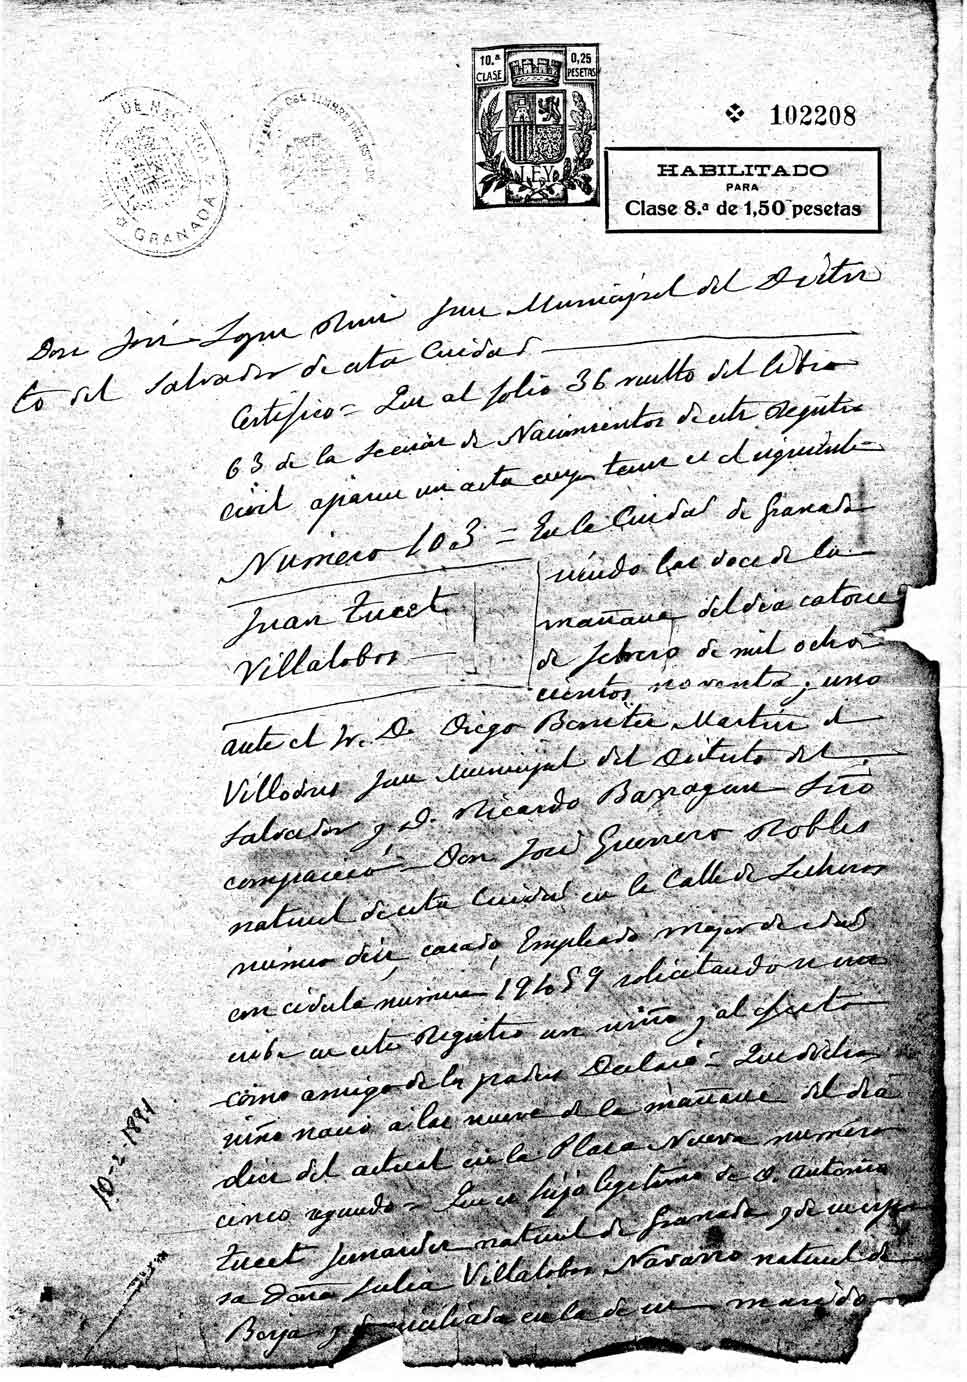 10.ª CLASE
0,25 PESETAS
DE HACIENDA
GRANADA
102208
HABILITADO
PARA
Clase 8.ª de 1,50 pesetas
Don José Lopez Ruiz Juez Municipal del Distri
to del Salvador de esta Ciudad
Certifico = Que al folio 36 vuelto del libro
63 de la Sección de Nacimientos de este Registro
civil aparece un acta cuyo tenor es el siguiente
Número 103 = En la Ciudad de Granada
siendo las doce de la
Juan Tucet
mañana del dia catorce
Villalobos
de febrero de mil ocho
cientos noventa y uno
ante el Sr. D. Diego Benitez Martin de
Villodres Juez Municipal del Distrito del
Salvador y D. Ricardo Barragan Srio
compareció Don José Guerrero Robles
natural de esta Ciudad en la Calle de Lecheros
número diez casado, Empleado mayor de edad
con cédula número 191059 solicitando se ins
criba en este Registro un niño y al efecto
como amigo de los padres Declaró = Que dicho
niño nació a las nueve de la mañana del dia
diez del actual en la Plaza Nueva número
cinco segundo = Que es hijo legitimo de D. Antonio
Tucet natural de Granada y de su espo
sa Doña Julia Villalobos Navarro natural de
Berja y domiciliada en la de su marido
10-2-1891